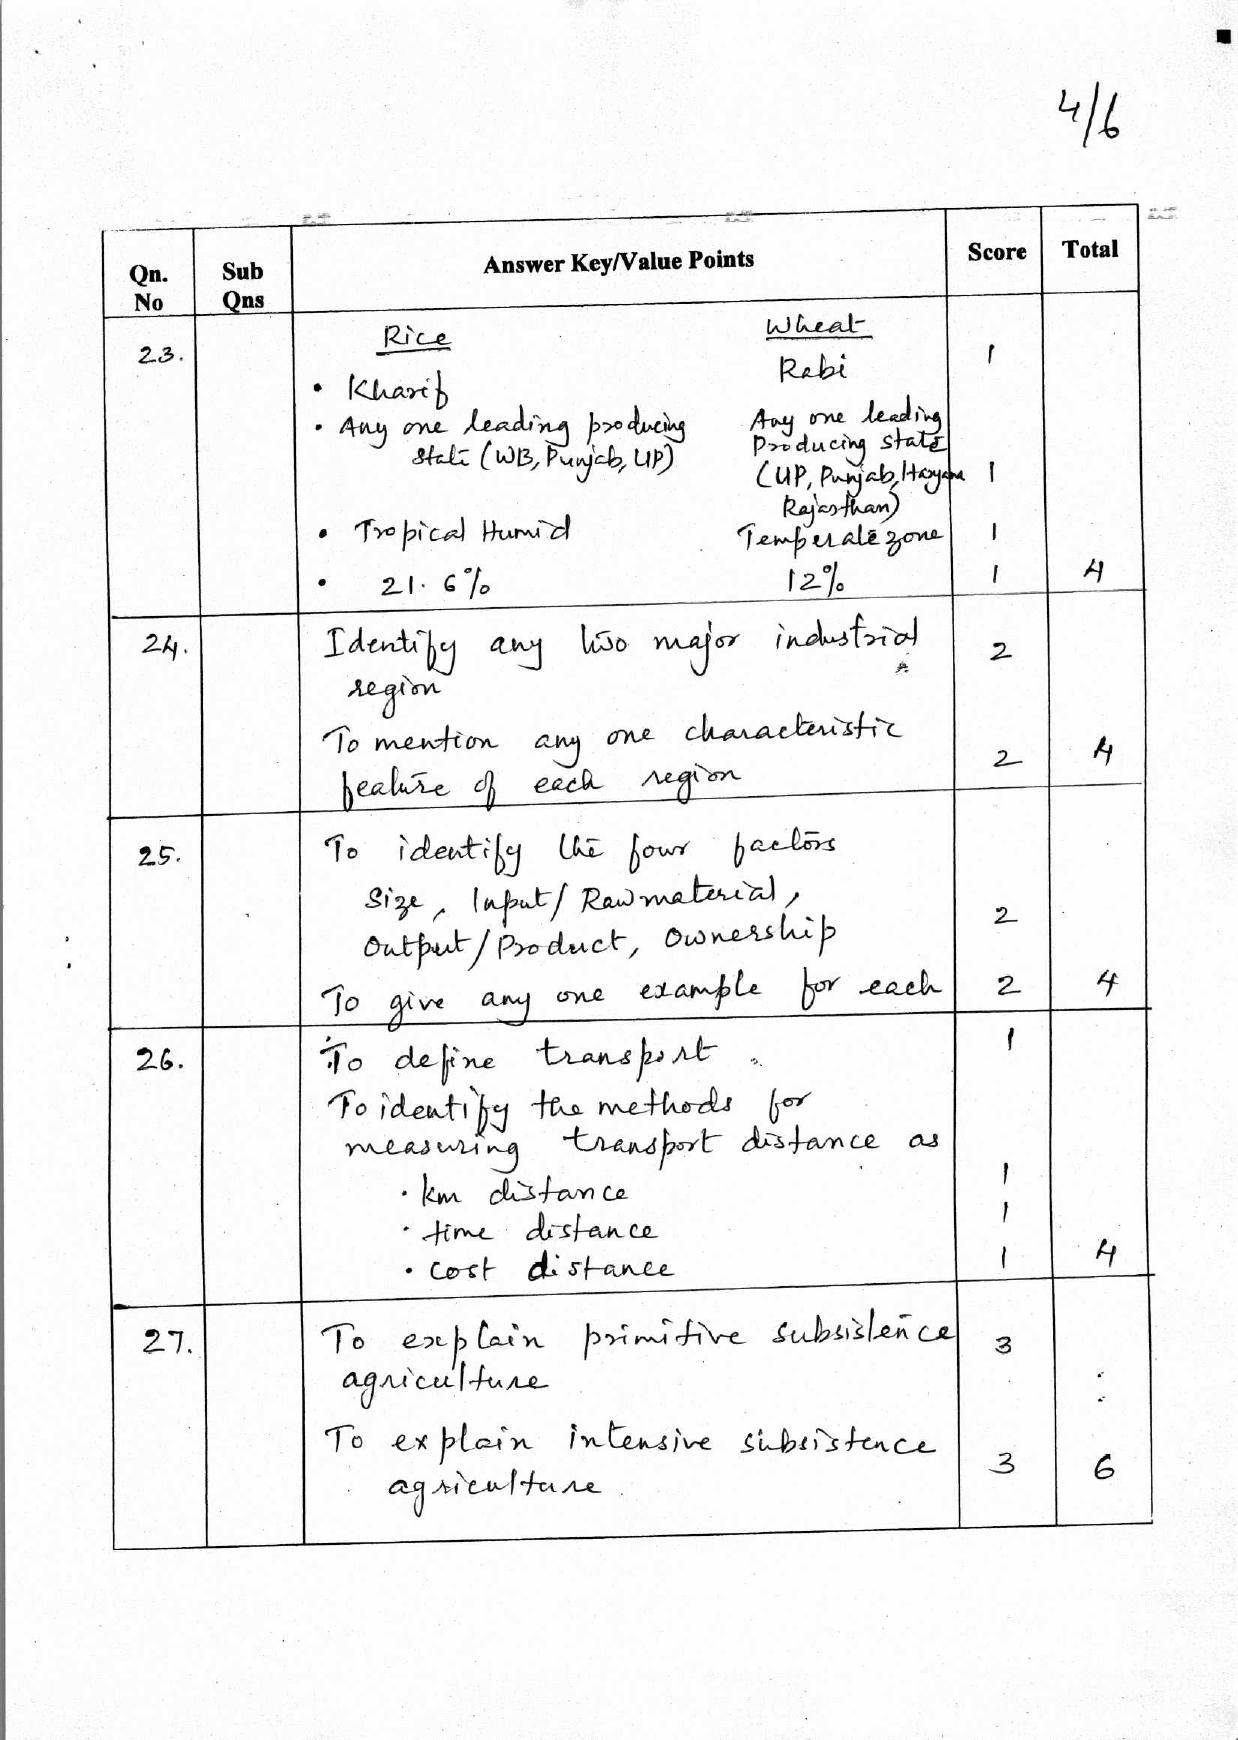 4/6
Qn. No Sub Qns Answer Key/Value Points Score Total
23. Rice Wheat
• Kharif Rabi 1
• Any one leading producing Any one leading
state (WB, Punjab, UP) Producing state
(UP, Punjab, Haryana 1
Rajasthan)
• Tropical Humid Temperate zone 1
• 21.6% 12% 1 4
24. Identify any two major industrial 2
region
To mention any one characteristic
feature of each region 2 4
25. To identify the four factors
Size, Input/Rawmaterial,
Output/Product, Ownership 2
To give any one example for each 2 4
26. To define transport. 1
To identify the methods for
measuring transport distance as
• km distance 1
• time distance 1
• cost distance 1 4
27. To explain primitive subsistence 3
agriculture
To explain intensive subsistence
agriculture. 3 6